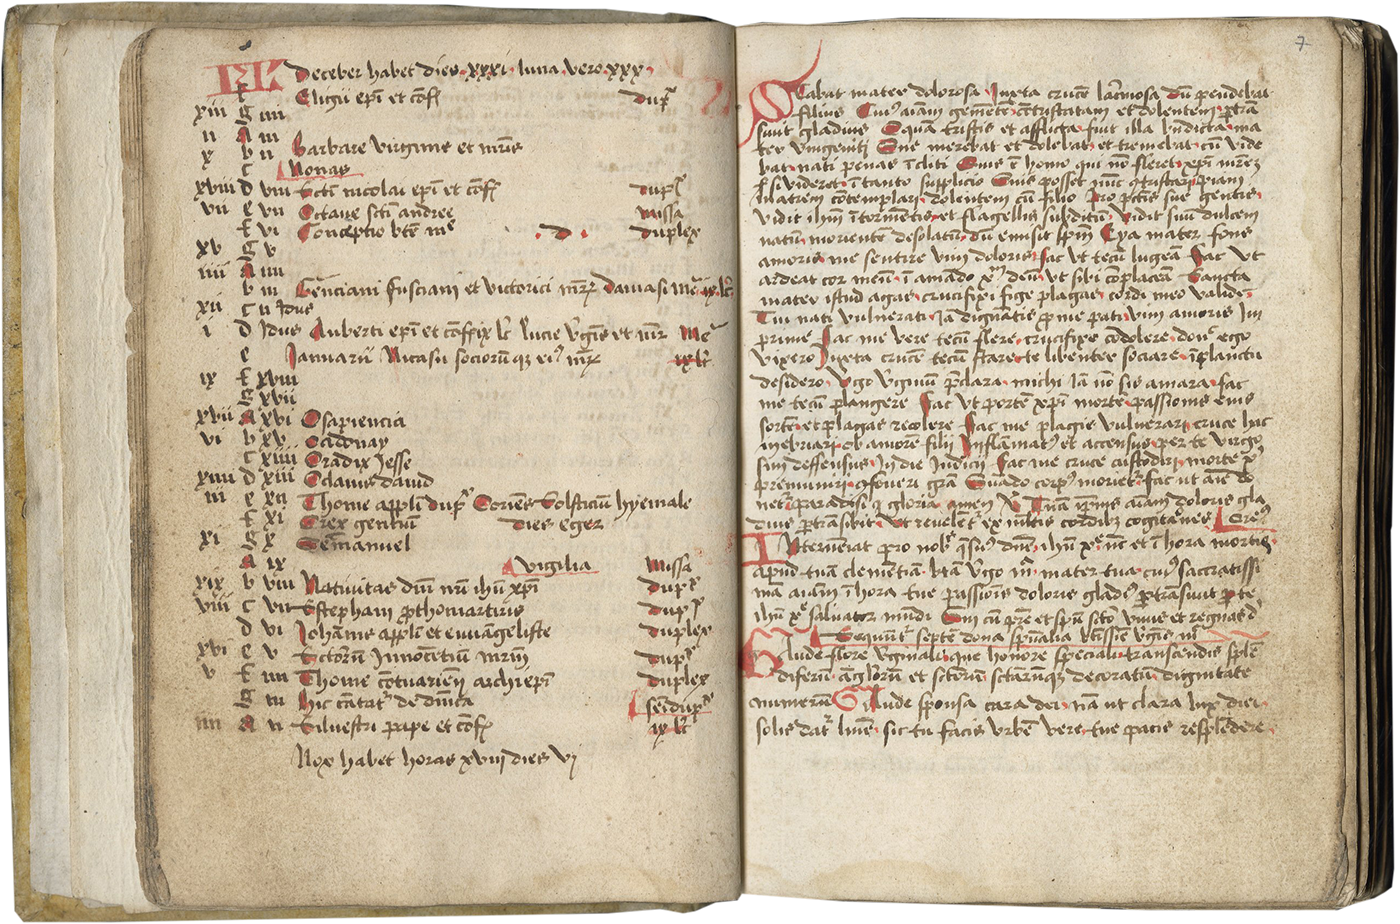 KL Deceber habet dies xxxi luna vero xxx
f Eligii epi et cof dup
xiii g iiii
ii A iii
x b ii Barbare virginis et mris
c Nonas
xviii d viii Scti nicolai epi et cof dup
vii e vii Octave scti andree missa
f vi Conceptio bte me d duplex
xv g v
iiii A iiii
b iii Genciani fusciani et victorici mr Damasi me ix lc
xii c ii Idus
i d Idus Auberti epi et coff ix lc lucie vgis et mr me
e Ianuarii Nicasii sociorumq ei mr ix lc
ix f xviii
g xvii
xvii A xvi O sapiencia
vi b xv O adonay
c xiiii O radix Jesse
xiiii d xiii O clavis david
iii e xii Thome appli dup solsticiu hyemale
f xi O rex gentiu dies eger
xi g x O emanuel
A ix Vigilia missa
xix b viii Nativitas dni nri ihu xpi dup
viii c vii Stephani prothomartiris dup
d vi Iohannis appli et euuangeliste duplex
xvi e v Sctoru Innocentiu mrm dup
v f iiii Thome cantuarien archiepi duplex
g iii hic catat de dnica semidup
iiii A ii Silvestri pape et cof ix lc
Nox habet horas xviii dies vi
7
Stabat mater dolorosa Iuxta cruce lacrimosa du pendebat
filius Cuius aiam gemente contristatam et dolentem ptran
sivit gladius O quam tristis et afflicta fuit illa bndicta ma
ter unigeniti Que merebat et dolebat et tremebat cu vide
bat nati penas icliti Quis e homo qui no fleret xpi mrem
si videret i tanto supplicio Quis posset non gtristari piam
Matrem contemplari dolentem cu filio Pro pctis sue gentis
vidit ihm i tormentis et flagellis subditu Vidit suu dulcem
natu moriente desolatu du emisit spm Eya mater fons
amoris me sentire vim doloris fac ut tecu lugea Fac ut
ardeat cor meu i amado xpm deu ut sibi complacea Sancta
mater istud agas crucifixi fige plagas cordi meo valide
Tui nati vulnerati Ia dignatis p me pati vim amoris Im
prime Fac me vere tecu flere crucifixo codolere donec ego
vixero Iuxta cruce tecu stare te libenter sociare i planctu
desidero Virgo virginu pclara michi ia no sis amara fac
me tecu plangere Fac ut porte xpi morte passionis eius
sorte et plagas recolere Fac me plagis vulnerari cruce hac
inebriari ob amore filii Inflammat et accensus per te virgo
sim deffensus in die iudicii Fac me cruce custodiri morte xi
premuniri gfoveri gra Quado corp moriet fac ut aie do
net paradisi gloria amen Tua ipius aiam doloris gla
dius ptransibit Ut revelet ex multis cordibz cogitaones Ore
Interveniat pro nob qs dne ihu xe nuc et i hora mortis
apud tua clementia bta virgo ma mater tua cuius sacratissi
ma aiam i hora tue passionis doloris gladi ptransivit p te
ihu xe salvator mundi Qui cu pre et spu scto vivis et regnas d
Sequut septe dona spualia btissie vgis m
Gaude flore virginali que honore speciali transcendis sple
diferu angloru et sctoru sctarumqz decoratu dignitate
numeru Gaude sponsa cara dei na ut clara lux diei
solis dat lume sic tu facis orbe vere tue pacis resplendere